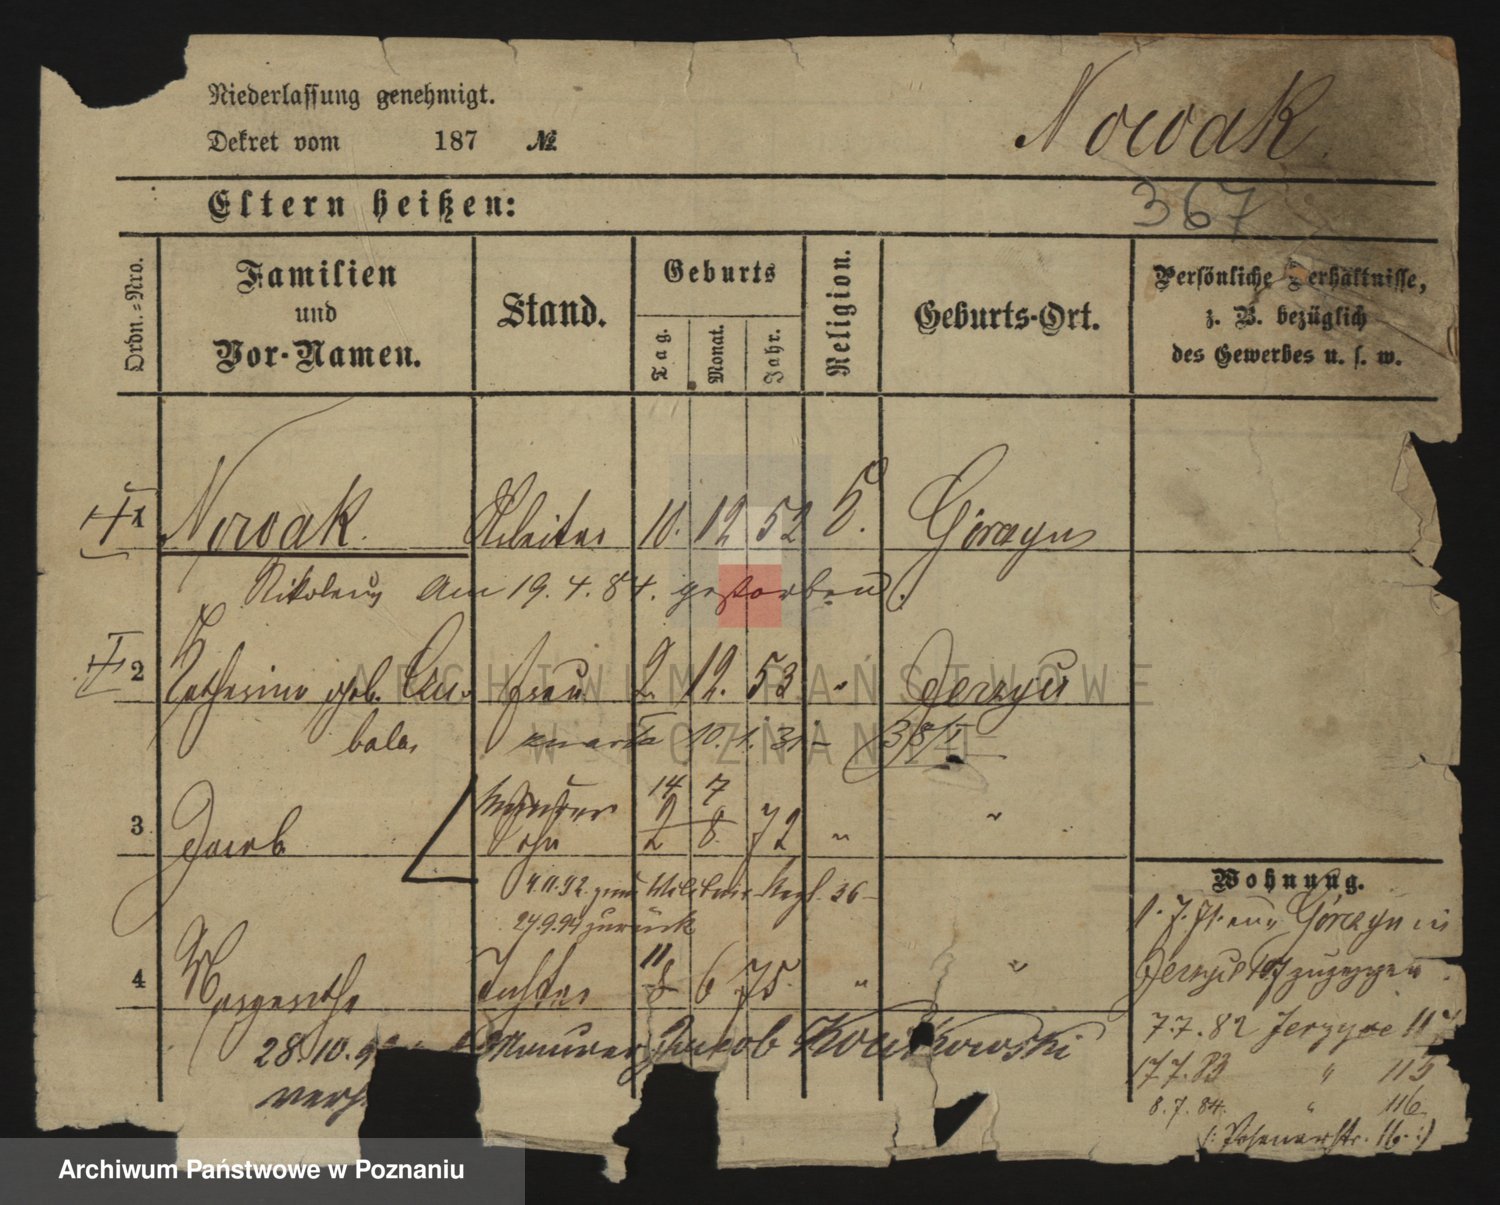 Niederlassung genehmigt.
Dekret vom 187 №
Nowak.
Eltern heißen:
367
Ordn.-Nro.
Familien
und
Vor-Namen.
Stand.
Geburts
Tag.
Monat.
Jahr.
Religion.
Geburts-Ort.
Persönliche Verhältnisse,
z. B. bezüglich
des Gewerbes u. s. w.
1 Nowak. Arbeiter 10. 12 52 Górczyn
Nikolaus Am 19. 4. 84. gestorben.
2 Katharina geb. Cu- Frau 2. 12. 53 " Jerzyce
bala,
10. 1. 31
14 7
3 Jacob Sohn 2 8. 72 " "
4.11.92. zum Militair Regt. 36
27.9.94 zurück
11
4 Margarethe Tochter 8 6 75. " "
28.10.9 Maurer Jakob Kowtkowski
verh
Wohnung.
1. 7. 71. aus Górczyn in
Jerzyce 107 zugezogen.
7.7.82 Jerzyce 11
17.7.83 " 115
8.7.84. " 116
(: Posenerstr. 16. :)
ARCHIWUM PAŃSTWOWE
W POZNANIU
Archiwum Państwowe w Poznaniu